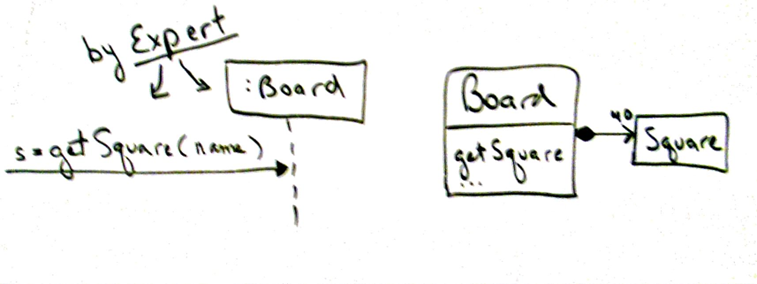 by Expert
:Board
s=getSquare(name)
Board
getSquare
...
40
Square